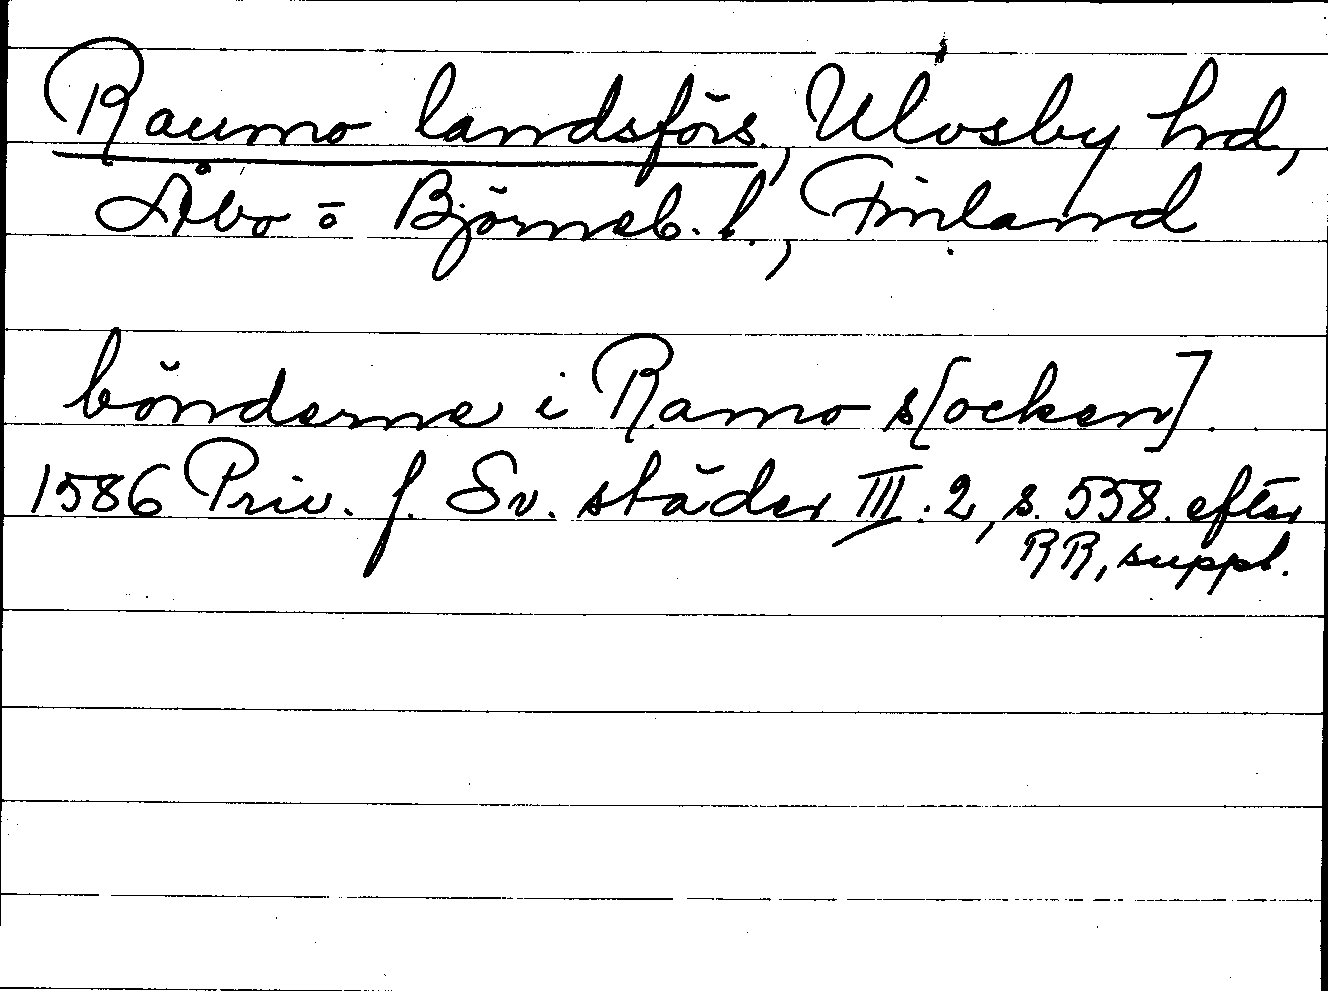 Raumo landsförs., Ulvsby hrd,
Åbo o Björneb. l., Finland
bönderne i Ramo s[ocken].
1586 Priv. f. Sv. städer III:2, s. 558. efter
RR, suppl.